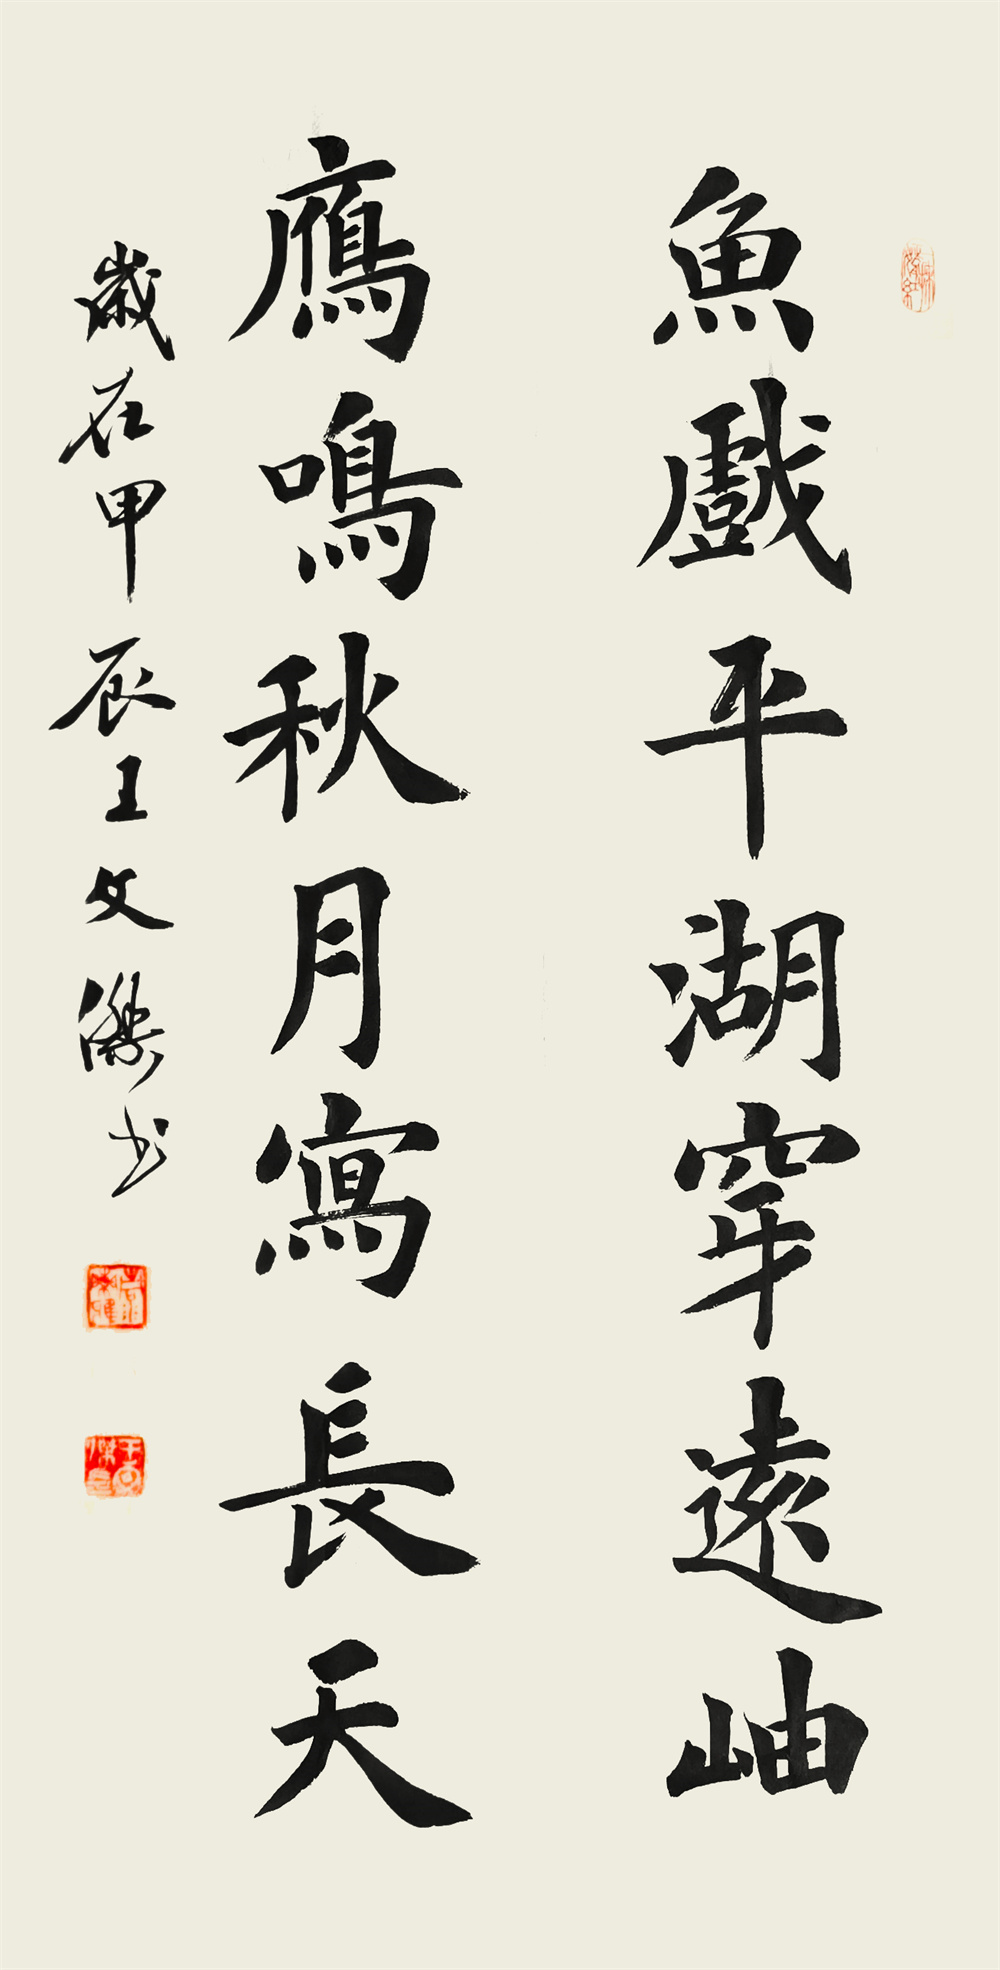 魚戲平湖穿遠岫
鴈鳴秋月寫長天
歲在甲辰王文傑书